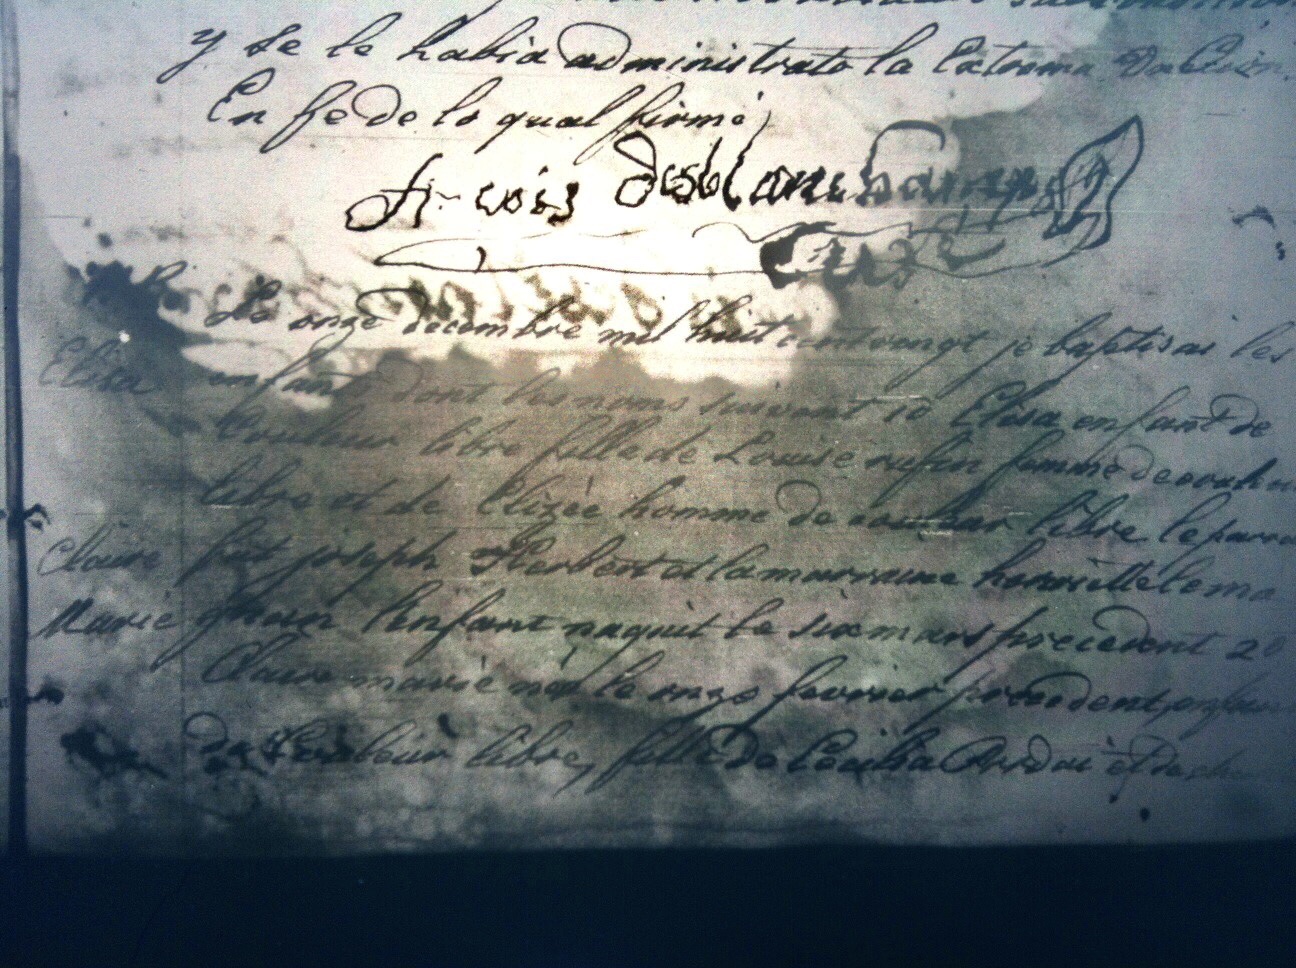 y se le habia administrato la Extrema
En fe de lo qual firmé
fr-cois Desblanchamps
Curé
Le onze decembre mil huit cent vingt je baptisai les
Elisa
enfants dont les noms suivent 1o Elisa enfant de
Couleur libre fille de Louise rufin femme de
libre et de Elizée homme de couleur libre le
Claire
fut joseph Herbert et la marraine henriette
Marie
l'enfant naquit le six mars precedent 2o
Claire marie née le onze fevrier precedent,
de Couleur libre, fille de Cecilia et de